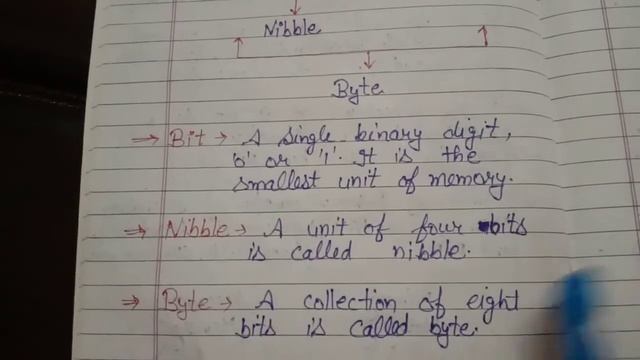 Nibble
Byte
⇒ Bit → A single binary digit,
'0' or '1'. It is the
smallest unit of memory.
⇒ Nibble → A unit of four bits
is called nibble.
⇒ Byte → A collection of eight
bits is called byte.